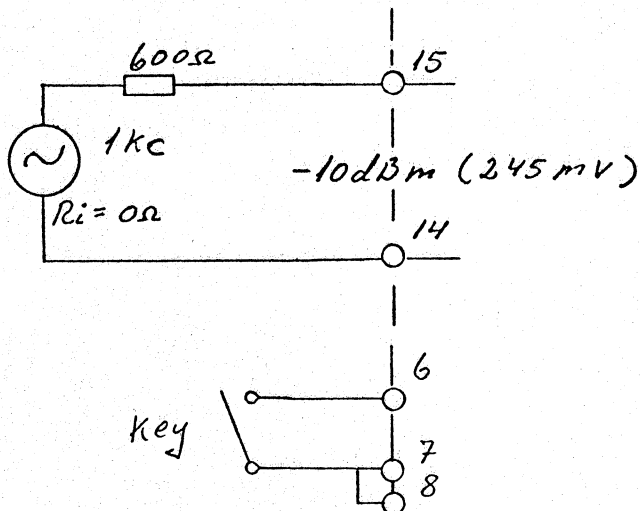 600Ω
15
1 kc
-10dBm (245 mV)
Ri = 0Ω
14
6
Key
7
8